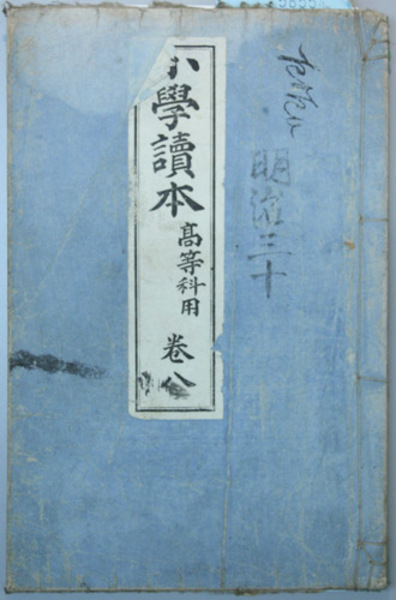 明治三十
小學讀本
高等科用
卷八